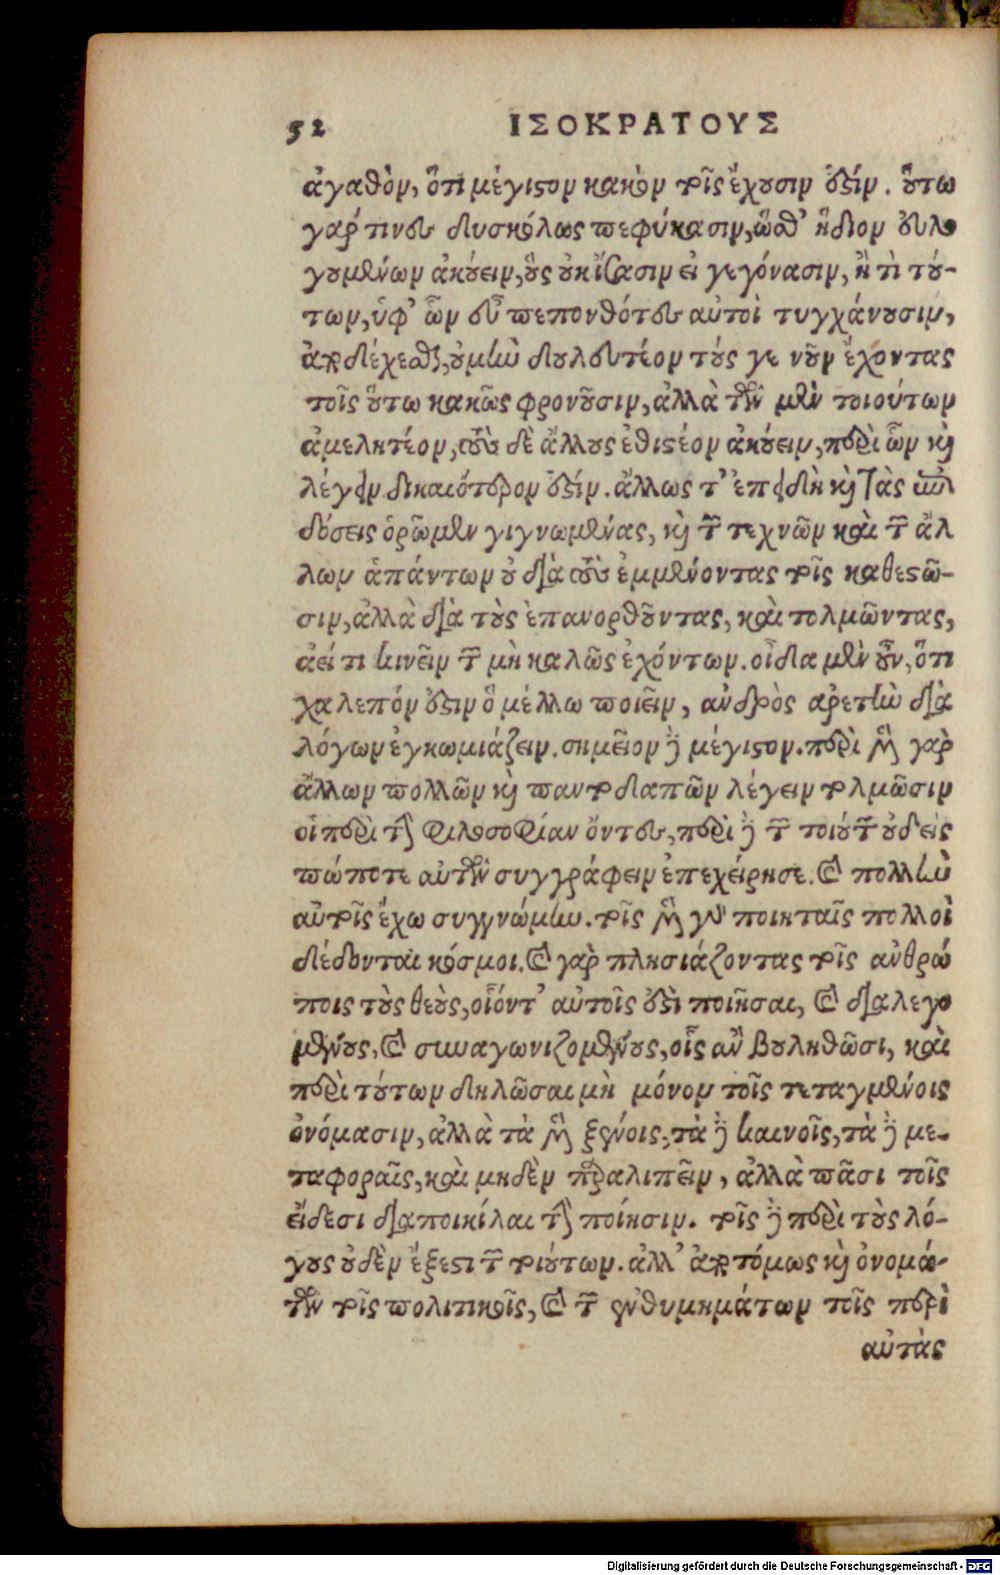 52 ΙΣΟΚΡΑΤΟΥΣ
ἀγαθὸν, ὅτι μέγιστον κακὸν τοῖς ἔχουσιν ἐστίν. οὕτω
γάρ τινες δυσκόλως πεφύκασιν, ὥσθ' ἥδιον εὐλο
γουμένων ἀκούειν, οὓς οὐκ ἴσασιν εἰ γεγόνασιν, ἢ τὶ τού-
των, ὑφ' ὧν εὖ πεπονθότες αὐτοὶ τυγχάνουσιν,
οὐ μὴν δουλευτέον τούς γε νοῦν ἔχοντας
τοῖς οὕτω κακῶς φρονοῦσιν, ἀλλὰ τῶν μὲν τοιούτων
ἀμελητέον, τοὺς δὲ ἄλλους ἐθιστέον ἀκούειν, περὶ ὧν καὶ
λέγειν δικαιότερον ἐστίν. ἄλλως τ' ἐπειδὴ καὶ τὰς ἐπι
δόσεις ὁρῶμεν γιγνωμένας, καὶ τῶν τεχνῶν καὶ τῶν ἄλ
λων ἁπάντων οὐ διὰ τοὺς ἐμμένοντας τοῖς καθεστῶ-
σιν, ἀλλὰ διὰ τοὺς ἐπανορθοῦντας, καὶ τολμῶντας,
ἀεί τι κινεῖν τῶν μὴ καλῶς ἐχόντων. οἶδα μὲν οὖν, ὅτι
χαλεπόν ἐστιν ὃ μέλλω ποιεῖν, ἀνδρὸς ἀρετὴν διὰ
λόγων ἐγκωμιάζειν. σημεῖον δὲ μέγιστον. περὶ μὲν γὰρ
ἄλλων πολλῶν καὶ παντοδαπῶν λέγειν τολμῶσιν
οἱ περὶ τὴν φιλοσοφίαν ὄντες, περὶ δὲ τῶν τοιούτων οὐδεὶς
πώποτε αὐτῶν συγγράφειν ἐπεχείρησε. καὶ πολλὴν
αὐτοῖς ἔχω συγγνώμην. τοῖς μὲν γὰρ ποιηταῖς πολλοὶ
δέδονται κόσμοι. καὶ γὰρ πλησιάζοντας τοῖς ἀνθρώ
ποις τοὺς θεοὺς, οἷόντ' αὐτοῖς ἐστὶ ποιῆσαι, καὶ διαλεγο
μένους, καὶ συναγωνιζομένους, οἷς ἂν βουληθῶσι, καὶ
περὶ τούτων δηλῶσαι μὴ μόνον τοῖς τεταγμένοις
ὀνόμασιν, ἀλλὰ τὰ μὲν ξένοις, τὰ δὲ καινοῖς, τὰ δὲ με-
ταφοραῖς, καὶ μηδὲν παραλιπεῖν, ἀλλὰ πᾶσι τοῖς
εἴδεσι διαποικίλαι τὴν ποίησιν. τοῖς δὲ περὶ τοὺς λό-
γους οὐδὲν ἔξεστι τῶν τοιούτων. ἀλλ' ἀποτόμως καὶ ὀνομά-
των τοῖς πολιτικοῖς, καὶ τῶν ἐνθυμημάτων τοῖς περὶ
αὐτὰς
Digitalisierung gefördert durch die Deutsche Forschungsgemeinschaft - DFG